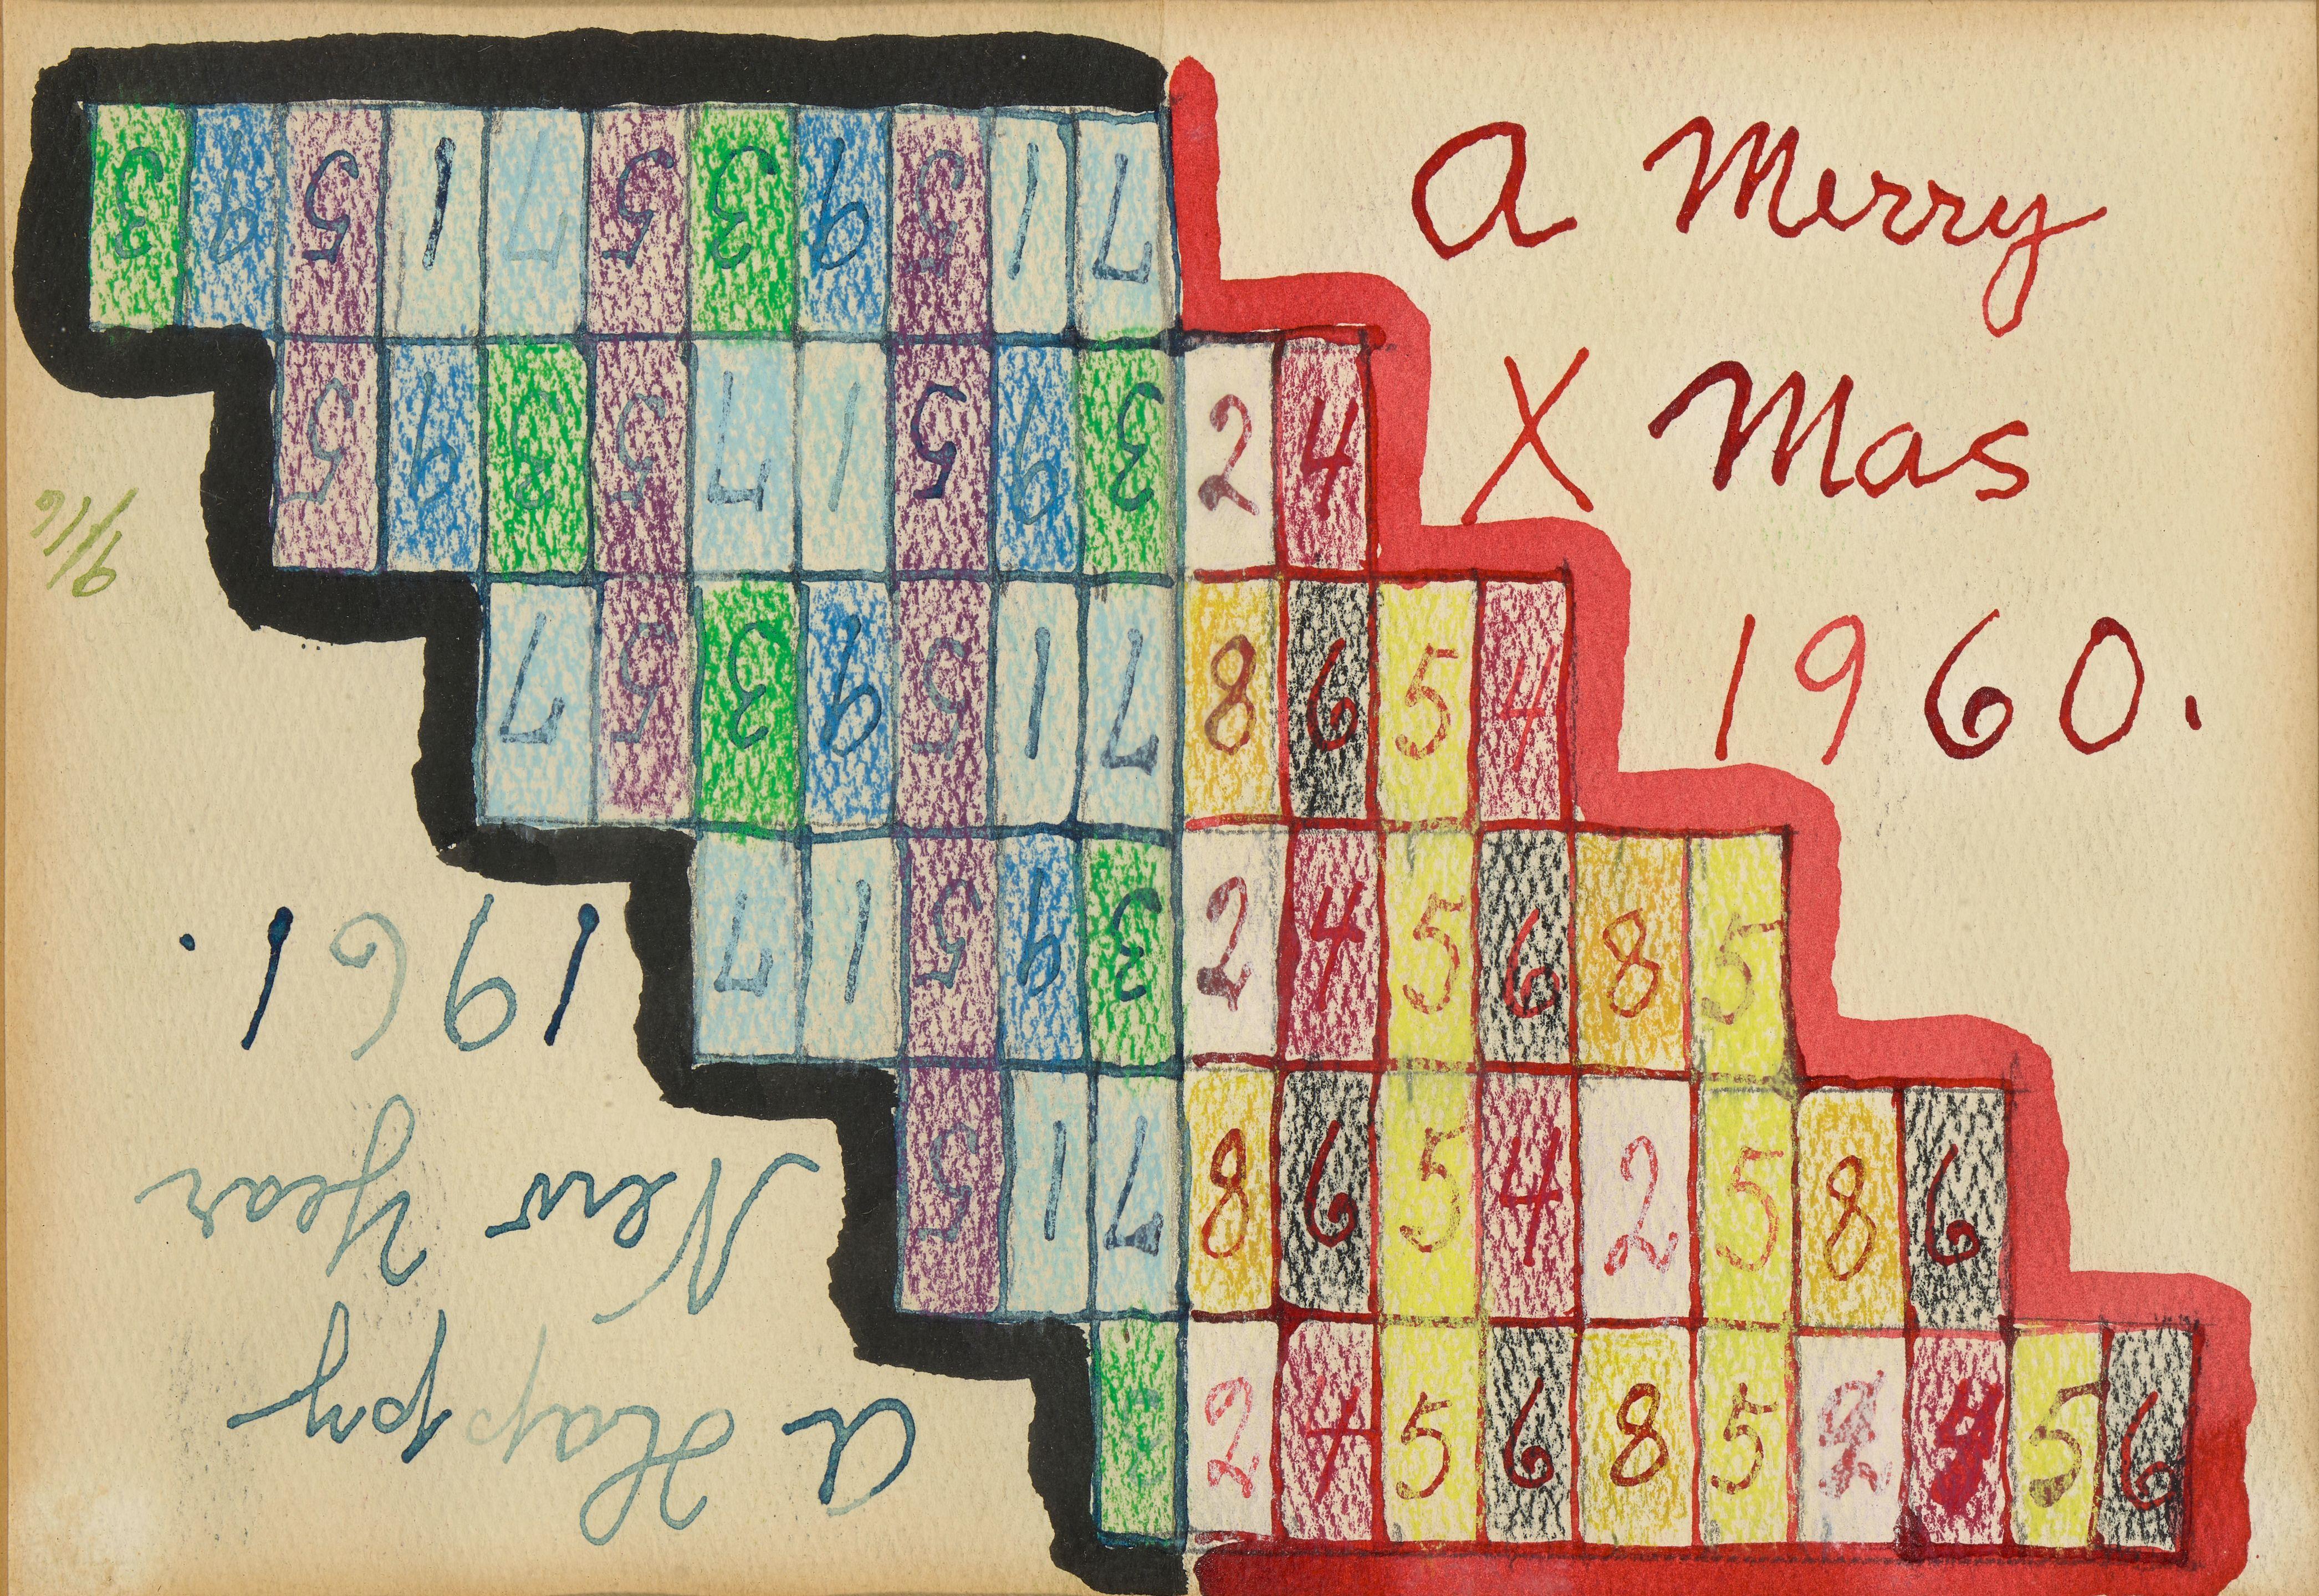 A Merry
X Mas
1960.
2 4
8 6 5 4
2 4 5 6 8 5
8 6 5 4 2 5 8 6
2 4 5 6 8 5 2 4 5 6
A Happy
New Year
1961.
9/16
3
7 1 5
3 9 5 1 7
7 1 5 9 3 5 7
3 9 5 1 7 5 3 9 5
7 1 5 9 3 5 7 1 5 9 3